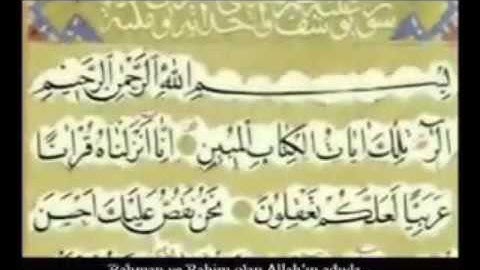 بسم الله الرحمن الرحيم
الر تلك ايات الكتاب المبين انا انزلناه قرانا
عربيا لعلكم تعقلون نحن نقص عليك احسن
Rahman ve Rahim olan Allah'ın adıyla